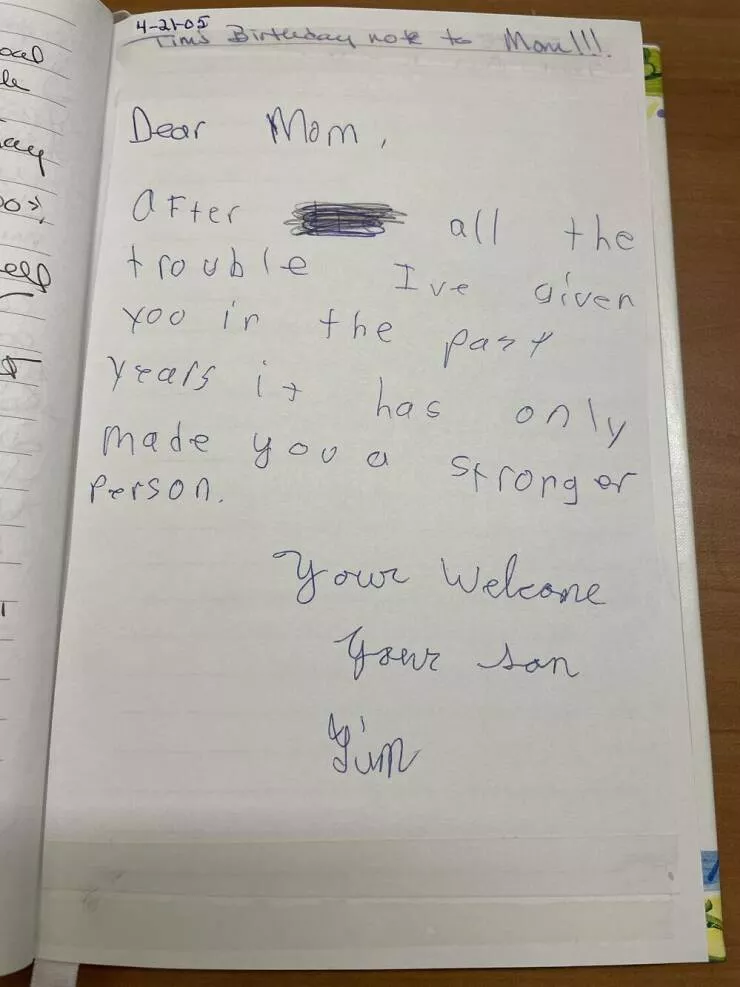 4-21-05
Tim's Birthday note to Mom!!!
Dear Mom,
After all the
trouble Ive given
you in the past
years it has only
made you a stronger
person.
Your Welcome
Your son
Tim